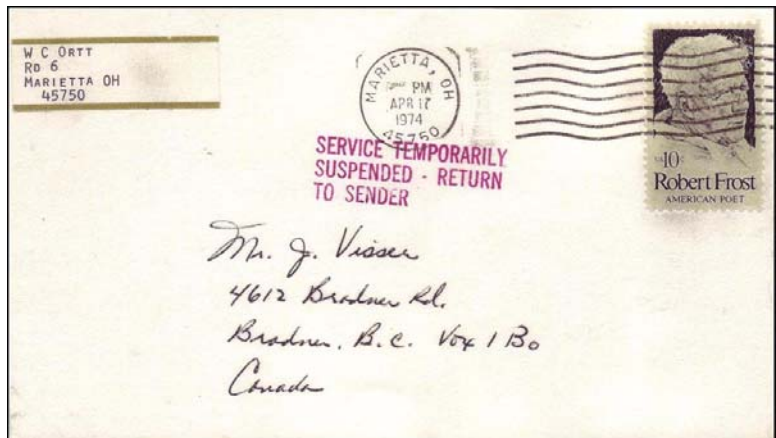 W C ORTT
RD 6
MARIETTA OH
45750
MARIETTA, OH
PM
APR 17
1974
45750
SERVICE TEMPORARILY
SUSPENDED - RETURN
TO SENDER
10c
Robert Frost
AMERICAN POET
Mr. J. Visser
4612 Bradner Rd.
Bradner, B.C. V0X 1B0
Canada